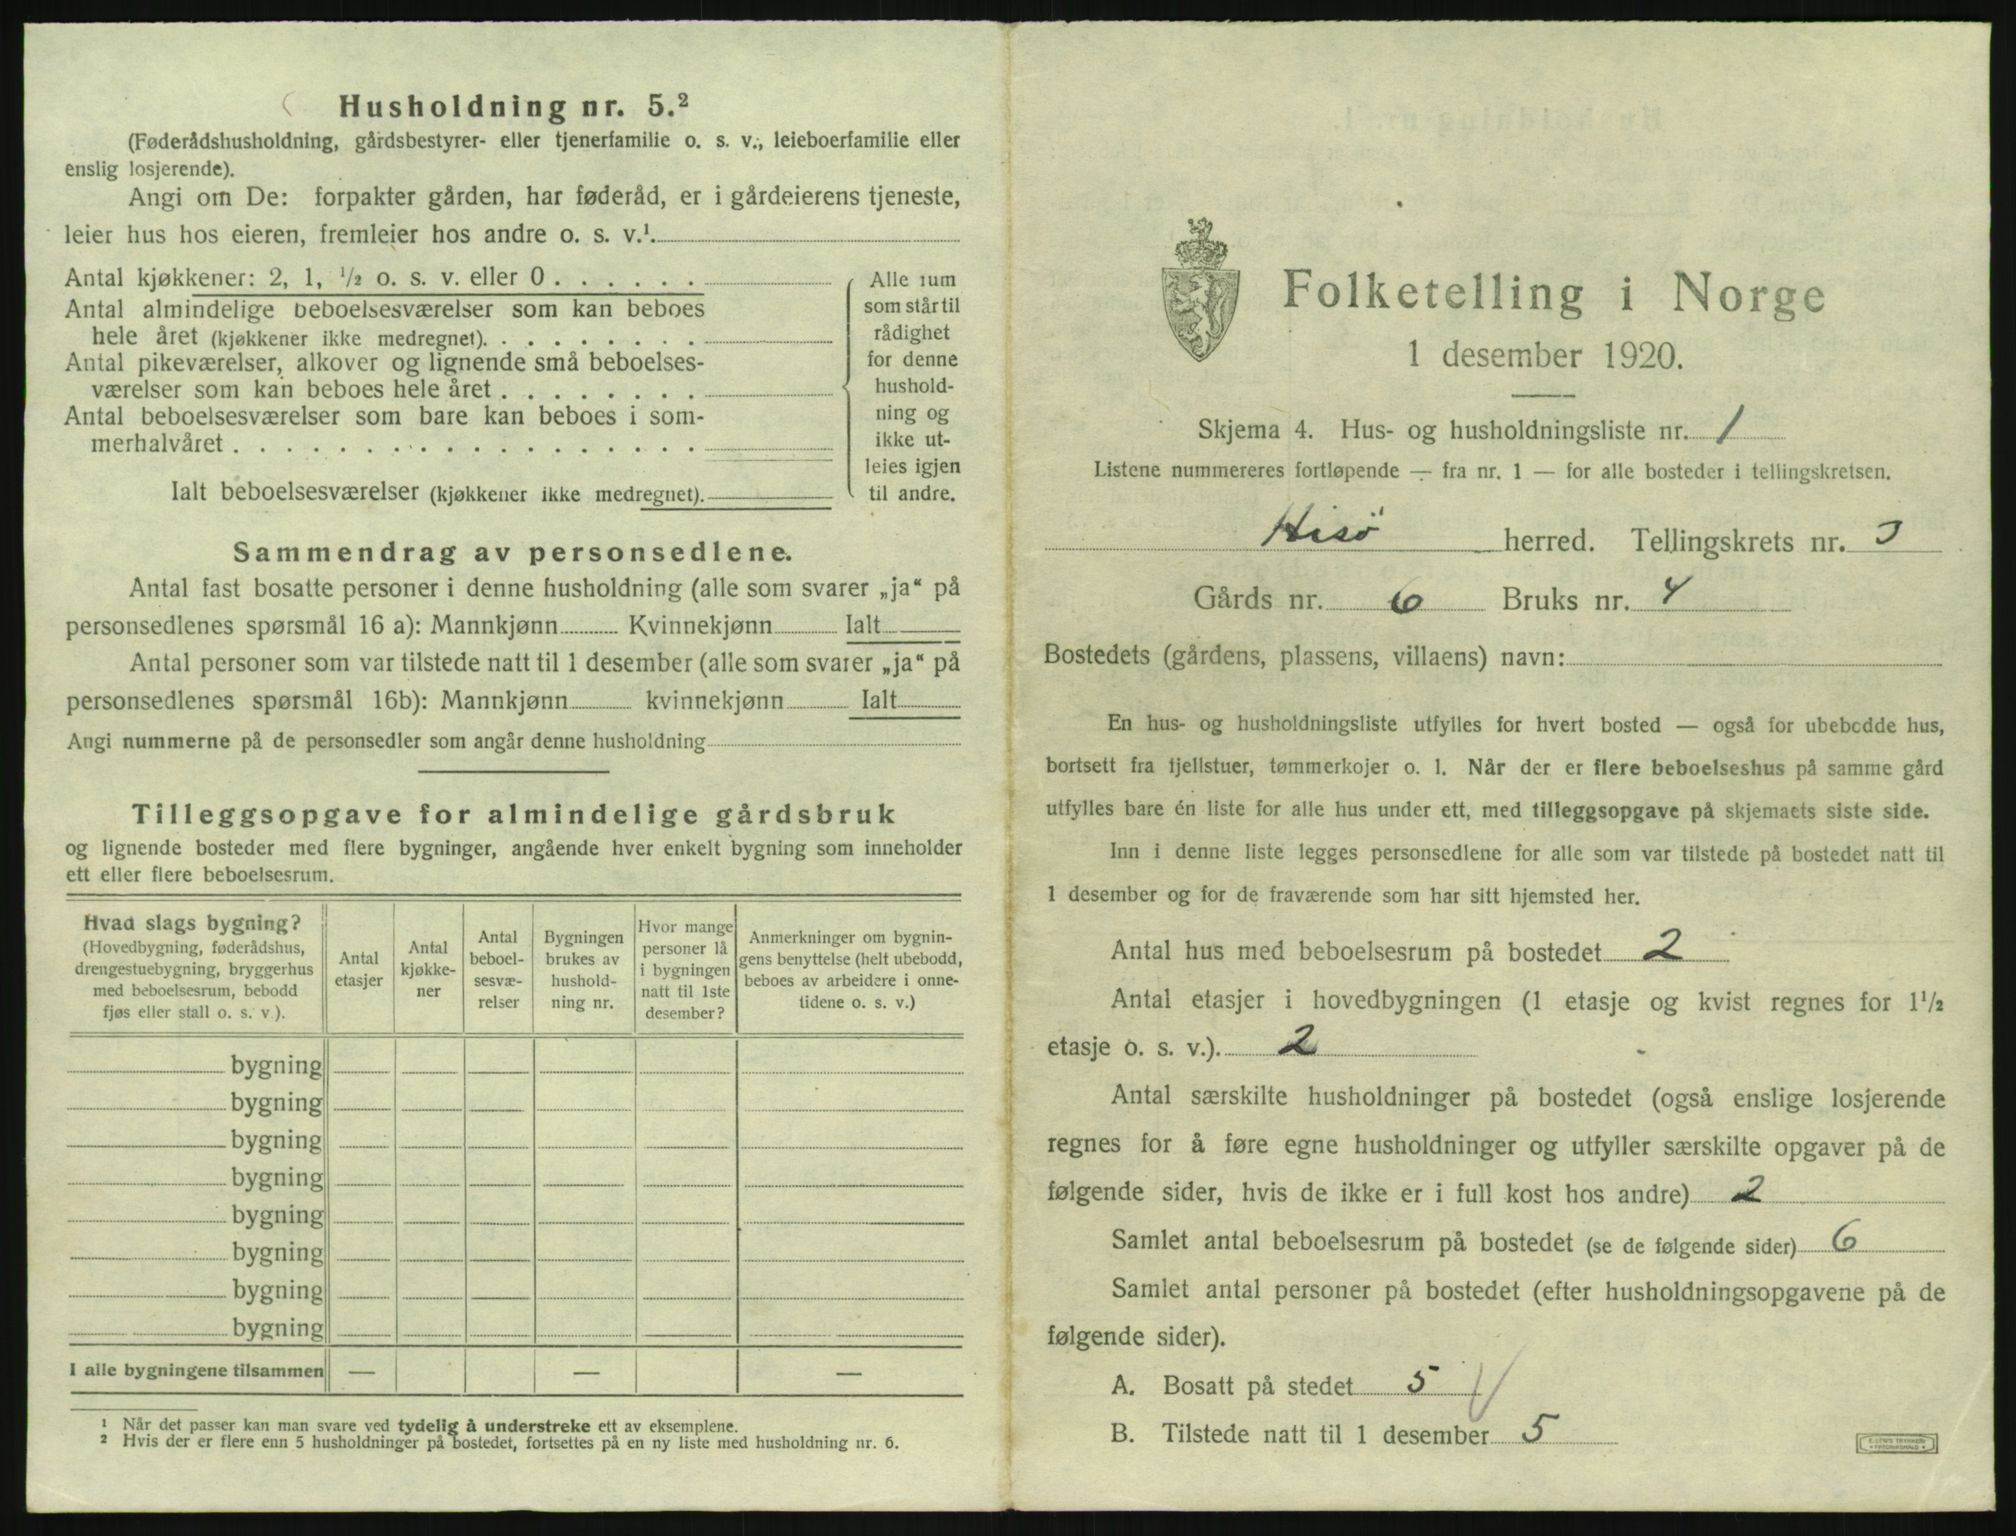 Husholdning nr. 5.²
(Føderådshusholdning, gårdsbestyrer- eller tjenerfamilie o. s. v., leieboerfamilie eller
enslig losjerende).
Angi om De: forpakter gården, har føderåd, er i gårdeierens tjeneste,
leier hus hos eieren, fremleier hos andre o. s. v.¹.
Antal kjøkkener: 2, 1, ½ o. s. v. eller 0 . . . . . .
Antal almindelige beboelsesværelser som kan beboes
hele året (kjøkkener ikke medregnet). . . . . . . . .
Antal pikeværelser, alkover og lignende små beboelses-
værelser som kan beboes hele året . . . . . . . .
Antal beboelsesværelser som bare kan beboes i som-
merhalvåret . . . . . . . . . . . . . . . . . .
Ialt beboelsesværelser (kjøkkener ikke medregnet).
Alle rum
som står til
rådighet
for denne
hushold-
ning og
ikke ut-
leies igjen
til andre.
Sammendrag av personsedlene.
Antal fast bosatte personer i denne husholdning (alle som svarer „ja“ på
personsedlenes spørsmål 16 a): Mannkjønn Kvinnekjønn Ialt
Antal personer som var tilstede natt til 1 desember (alle som svarer „ja“ på
personsedlenes spørsmål 16b): Mannkjønn kvinnekjønn Ialt
Angi nummerne på de personsedler som angår denne husholdning
Tilleggsopgave for almindelige gårdsbruk
og lignende bosteder med flere bygninger, angående hver enkelt bygning som inneholder
ett eller flere beboelsesrum.
Hvad slags bygning?
(Hovedbygning, føderådshus,
drengestuebygning, bryggerhus
med beboelsesrum, bebodd
fjøs eller stall o. s. v.).
Antal
etasjer
Antal
kjøkke-
ner
Antal
beboel-
sesvæ-
relser
Bygningen
brukes av
hushold-
ning nr.
Hvor mange
personer lå
i bygningen
natt til 1ste
desember?
Anmerkninger om bygnin-
gens benyttelse (helt ubebodd,
beboes av arbeidere i onne-
tidene o. s. v.)
bygning
bygning
bygning
bygning
bygning
bygning
bygning
bygning
I alle bygningene tilsammen — — —
¹ Når det passer kan man svare ved tydelig å understreke ett av eksemplene.
² Hvis der er flere enn 5 husholdninger på bostedet, fortsettes på en ny liste med husholdning nr. 6.
Folketelling i Norge
1 desember 1920.
Skjema 4. Hus- og husholdningsliste nr. 1
Listene nummereres fortløpende — fra nr. 1 — for alle bosteder i tellingskretsen.
Hisö herred. Tellingskrets nr. 3
Gårds nr. 6 Bruks nr. 4
Bostedets (gårdens, plassens, villaens) navn:
En hus- og husholdningsliste utfylles for hvert bosted — også for ubebodde hus,
bortsett fra fjellstuer, tømmerkojer o. l. Når der er flere beboelseshus på samme gård
utfylles bare én liste for alle hus under ett, med tilleggsopgave på skjemaets siste side.
Inn i denne liste legges personsedlene for alle som var tilstede på bostedet natt til
1 desember og for de fraværende som har sitt hjemsted her.
Antal hus med beboelsesrum på bostedet 2
Antal etasjer i hovedbygningen (1 etasje og kvist regnes for 1½
etasje o. s. v.). 2
Antal særskilte husholdninger på bostedet (også enslige losjerende
regnes for å føre egne husholdninger og utfyller særskilte opgaver på de
følgende sider, hvis de ikke er i full kost hos andre) 2
Samlet antal beboelsesrum på bostedet (se de følgende sider) 6
Samlet antal personer på bostedet (efter husholdningsopgavene på de
følgende sider).
A. Bosatt på stedet 5
B. Tilstede natt til 1 desember 5